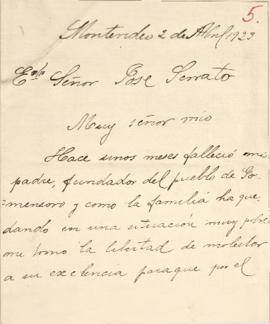 5.
Montevideo 2 de Abril 1923
Señor Jose Serrato
Muy señor mio
Hace unos meses falleció mi
padre, fundador del pueblo de Go-
mensoro y como la familia ha que
dando en una situacion muy pobre
me tomo la libertad de molestar
a su exelencia para que por el